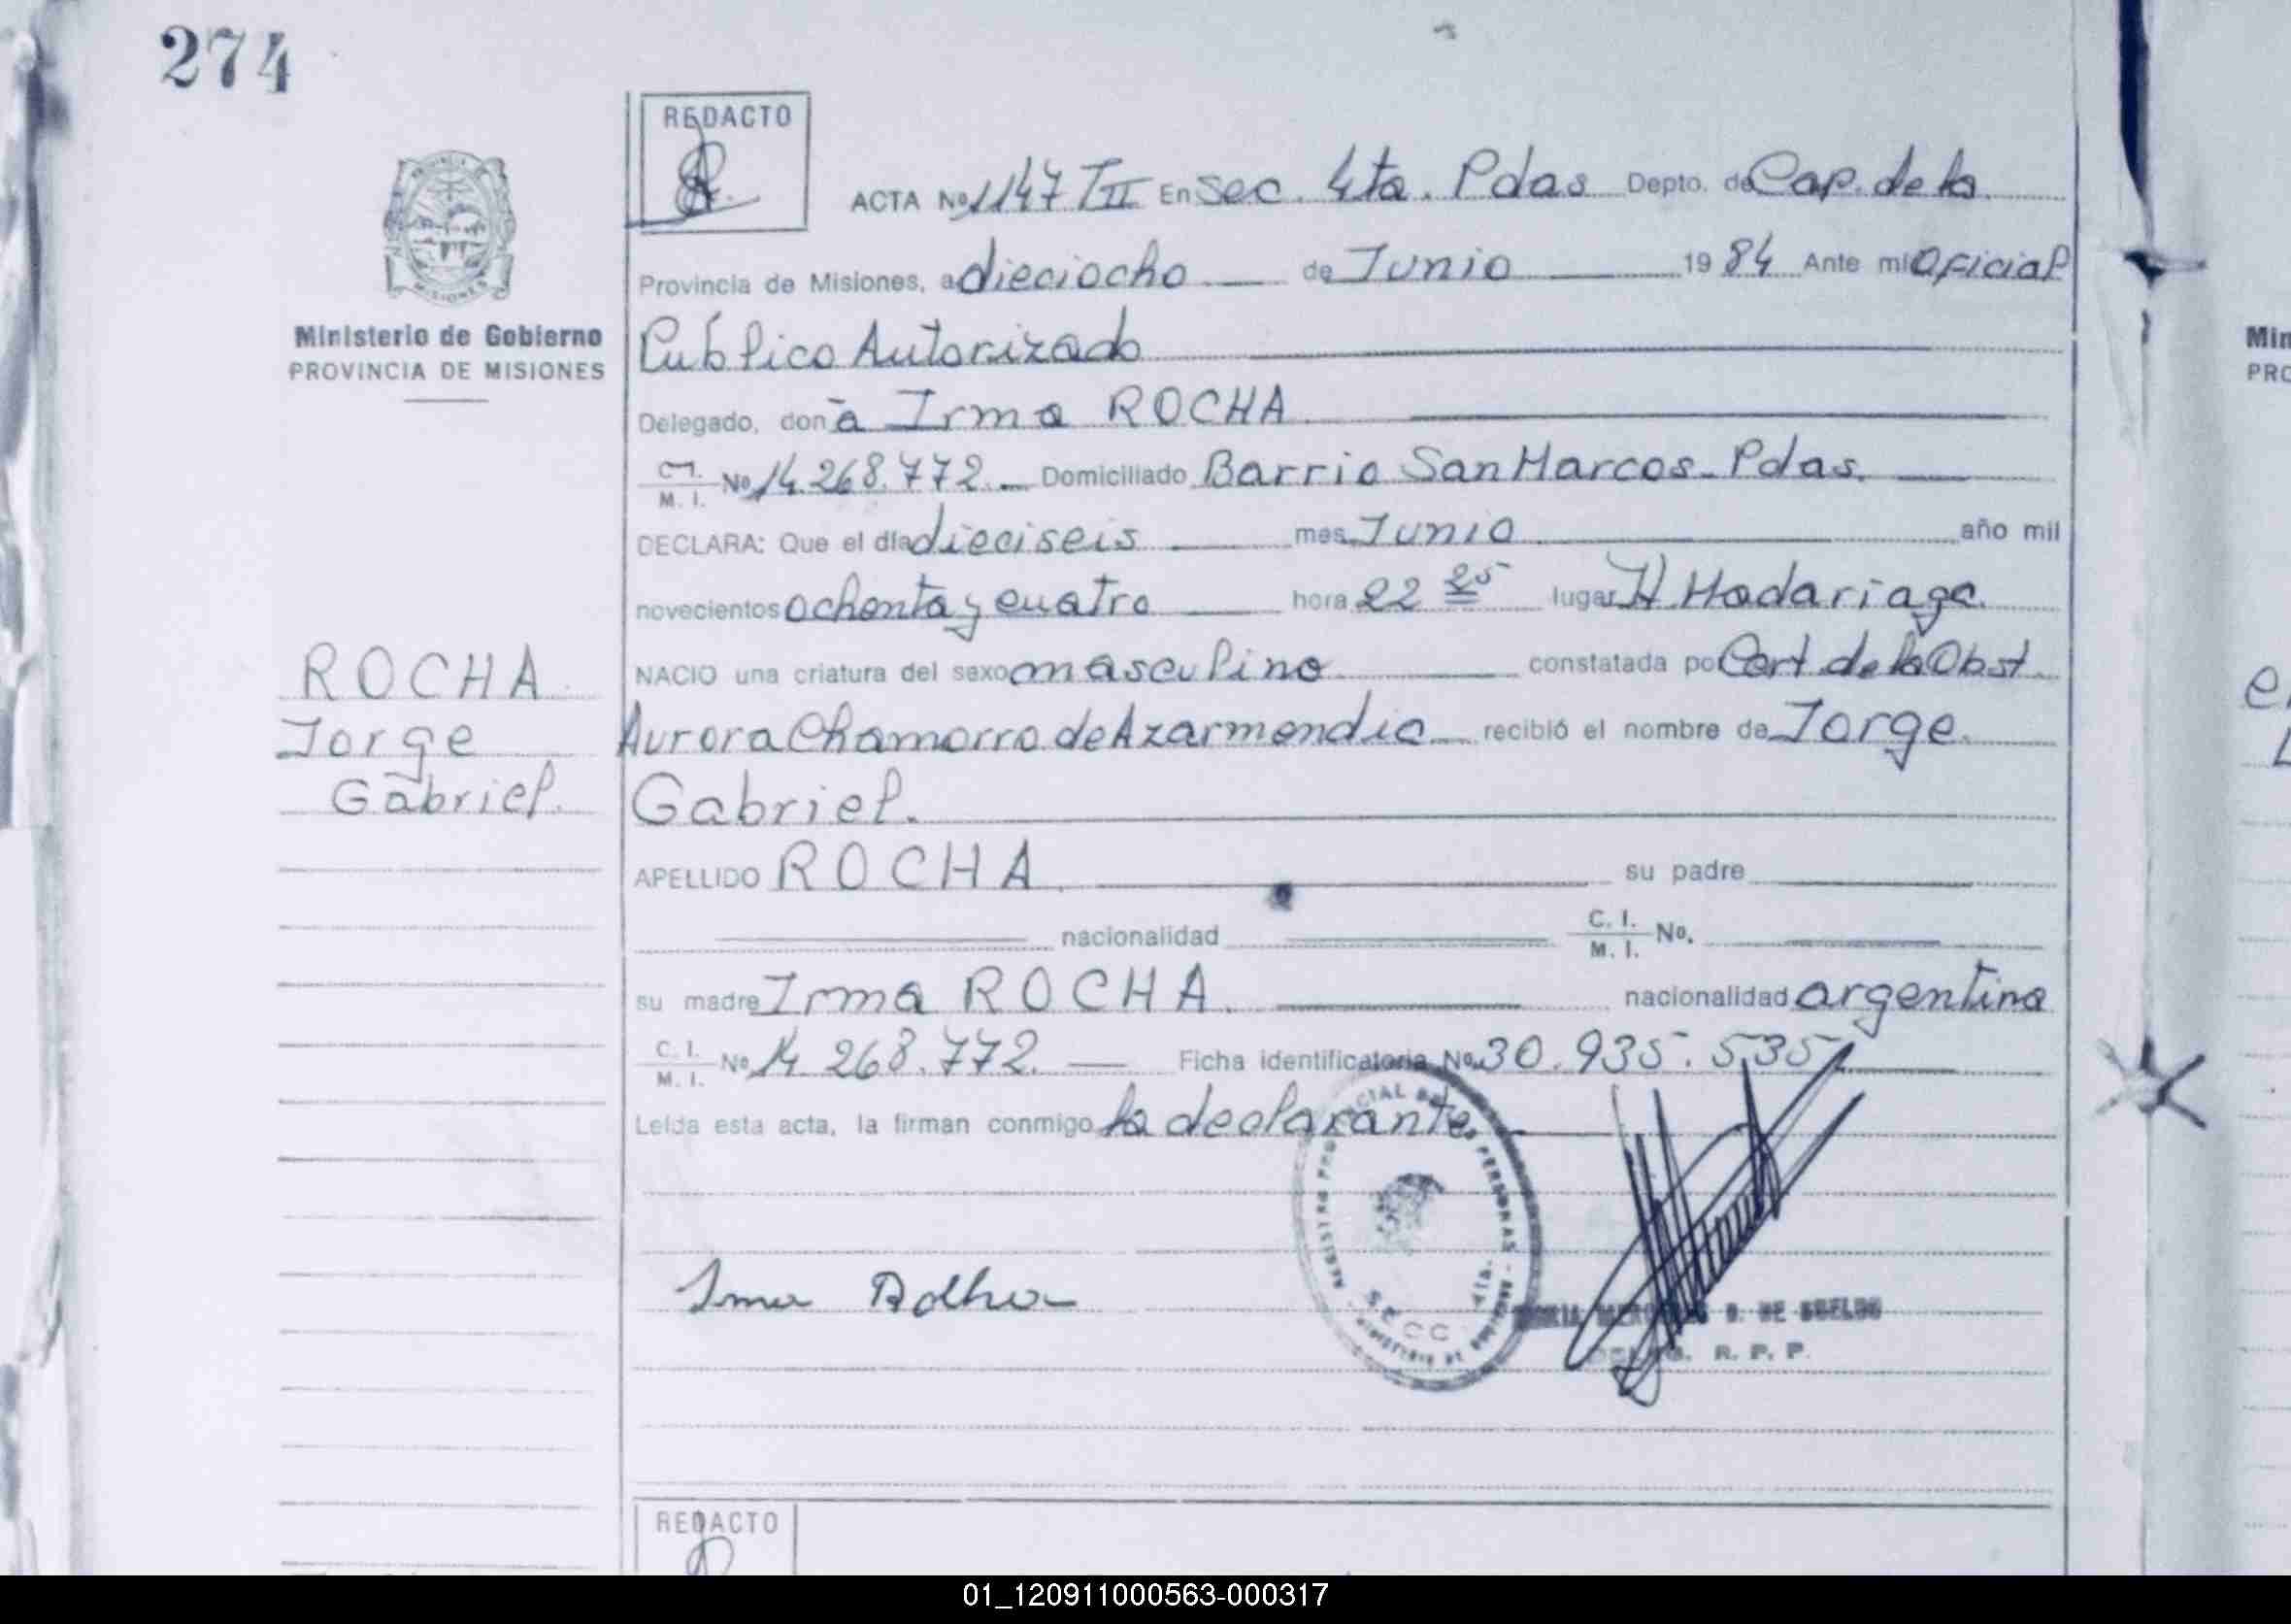 274
REDACTO
ACTA Nº 1147 TII En Sec. 4ta. Pdas Depto. de Cap. de la
Provincia de Misiones, a dieciocho de Junio 1984 Ante mi Oficial
Público Autorizado
Delegado, doña Irma ROCHA
C.I. M. I. Nº 14.268.772. Domiciliado Barrio San Marcos - Pdas.
DECLARA: Que el día dieciseis mes Junio año mil
novecientos ochenta y cuatro hora 22 25 lugar H. Madariaga.
NACIO una criatura del sexo masculino constatada por Cert de la Obst
Aurora Chamorro de Azarmendia recibió el nombre de Jorge
Gabriel.
APELLIDO ROCHA su padre
nacionalidad C. I. M. I. No.
su madre Irma ROCHA. nacionalidad argentina
C. I. M. I. Nº 14.268.772. Ficha identificatoria Nº 30.935.535
Leída esta acta, la firman conmigo la declarante.
Ministerio de Gobierno
PROVINCIA DE MISIONES
ROCHA
Jorge
Gabriel.
Irma
DE SUELDO
R. P. P.
REGISTRO PERSONAS
SECC 4ta.
REDACTO
Min
PRO
01_120911000563-000317